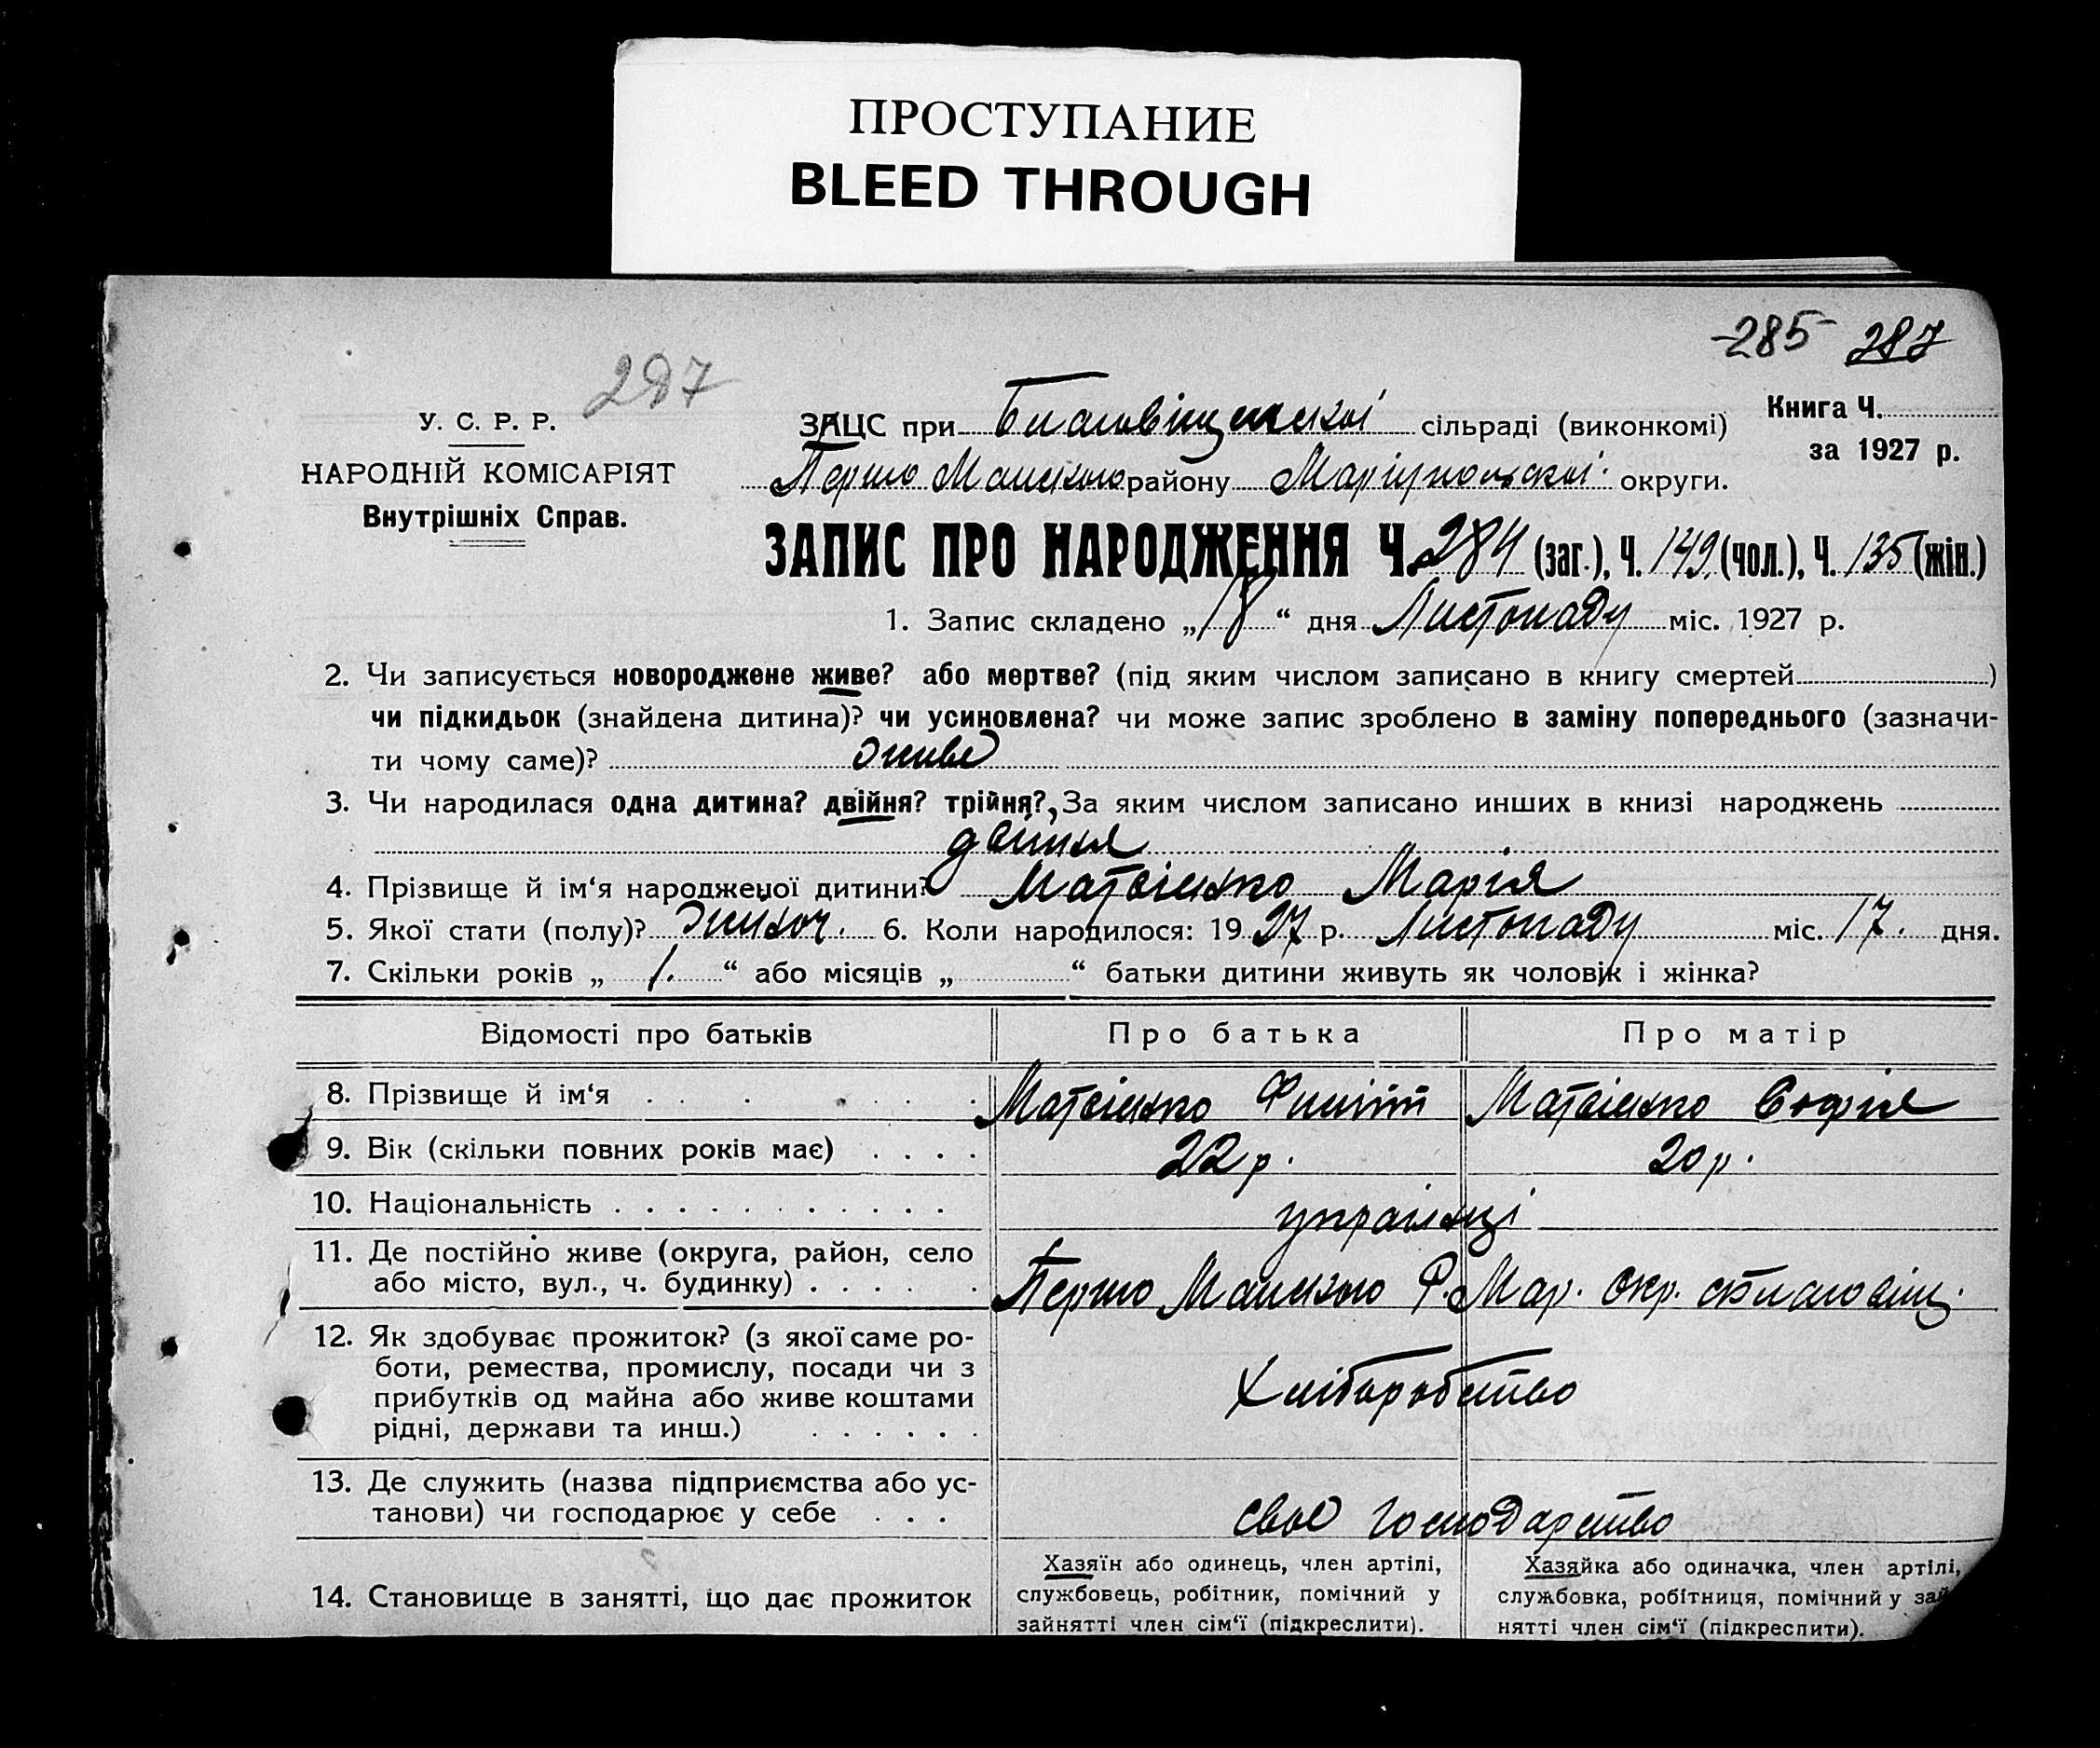 ПРОСТУПАНИЕ
BLEED THROUGH
-285- 287
287
У. С. Р. Р.
НАРОДНІЙ КОМІСАРІЯТ
Внутрішніх Справ.
Книга Ч.
за 1927 р.
ЗАЦС при Благовіщенської сільраді (виконкомі)
Першо Майського району Маріупольської округи.
ЗАПИС ПРО НАРОДЖЕННЯ Ч. 284 (заг.), Ч. 149. (чол.), Ч. 135 (жін.)
1. Запис складено „18“ дня Листопаду міс. 1927 р.
2. Чи записується новороджене живе? або мертве? (під яким числом записано в книгу смертей)
чи підкидьок (знайдена дитина)? чи усиновлена? чи може запис зроблено в заміну попереднього (зазначи-
ти чому саме)? живе
3. Чи народилася одна дитина? двійня? трійня? За яким числом записано инших в книзі народжень
двійня
4. Прізвище й ім‘я народженої дитини? Матвієнко Марія
5. Якої стати (полу)? жіноч. 6. Коли народилося: 1927 р. Листопаду міс. 17. дня.
7. Скільки років „1.“ або місяців „ “ батьки дитини живуть як чоловік і жінка?
Відомості про батьків Про батька Про матір
8. Прізвище й ім‘я Матвієнко Филіпп Матвієнко Софія
9. Вік (скільки повних років має) 22 р. 20 р.
10. Національність українці
11. Де постійно живе (округа, район, село
або місто, вул., ч. будинку) Першо Майського Р. Мар. Окр. с. Благовіщ.
12. Як здобуває прожиток? (з якої саме ро-
боти, ремества, промислу, посади чи з
прибутків од майна або живе коштами
рідні, держави та инш.) Хліборобство
13. Де служить (назва підприємства або ус-
танови) чи господарює у себе своє господарство
14. Становище в занятті, що дає прожиток
Хазяїн або одинець, член артілі,
службовець, робітник, помічний у
зайнятті член сім‘ї (підкреслити).
Хазяйка або одиначка, член артілі,
службовка, робітниця, помічний у зай
нятті член сім‘ї (підкреслити).